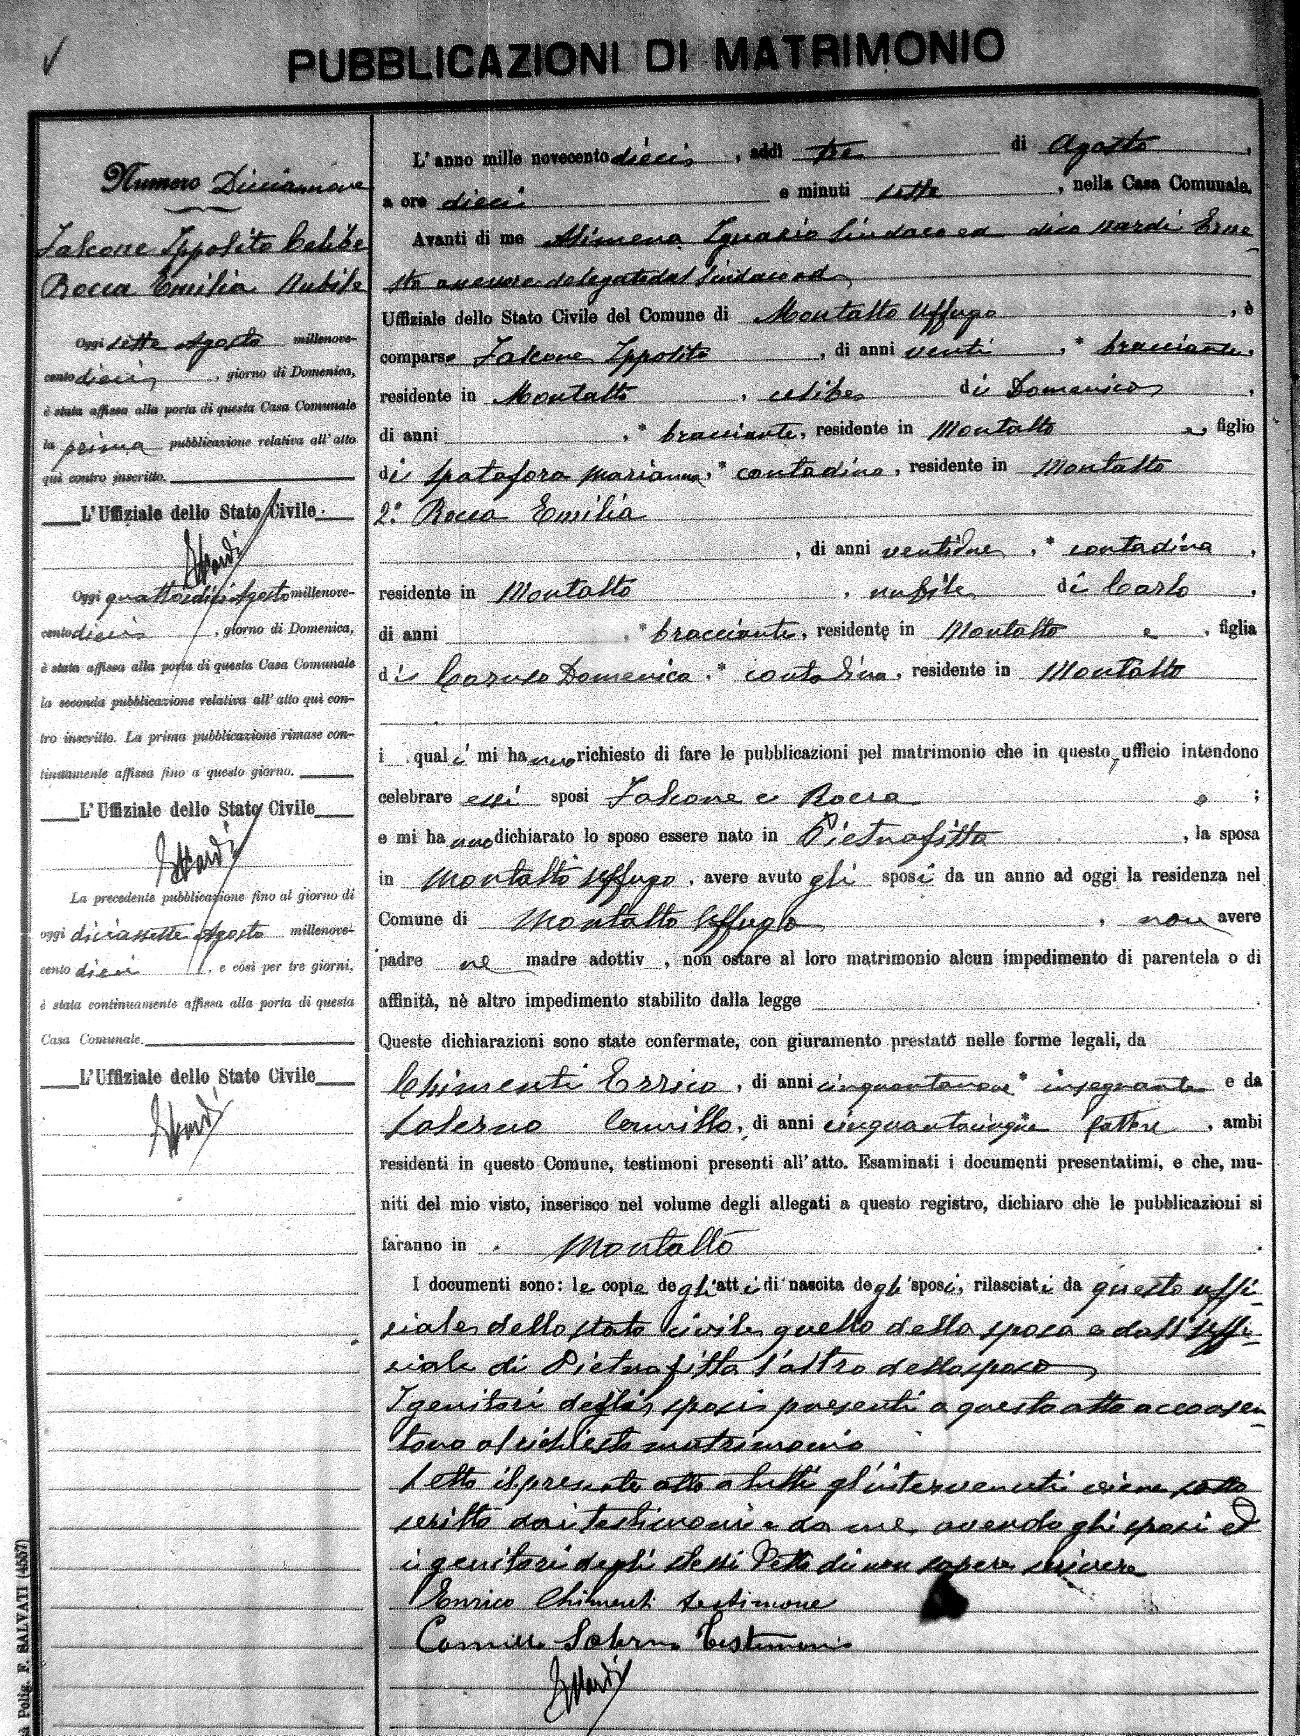 PUBBLICAZIONI DI MATRIMONIO
Numero Diciannove
Falcone Ippolito Celibe
Rocca Emilia Nubile
Oggi sette Agosto millenove-
cento dieci, giorno di Domenica,
è stata affissa alla porta di questa Casa Comunale
la prima pubblicazione relativa all'atto
quì contro inscritto.
L'Uffiziale dello Stato Civile
ENardi
Oggi quattordici Agosto millenove-
cento dieci, giorno di Domenica,
è stata affissa alla porta di questa Casa Comunale
la seconda pubblicazione relativa all'atto quì con-
tro inscritto. La prima pubblicazione rimase con-
tinuamente affissa fino a questo giorno.
L'Uffiziale dello Stato Civile
ENardi
La precedente pubblicazione fino al giorno di
oggi diciassette Agosto millenove-
cento dieci, e così per tre giorni,
è stata continuamente affissa alla porta di questa
Casa Comunale.
L'Uffiziale dello Stato Civile
ENardi
L'anno mille novecento dieci, addì tre di Agosto,
a ore dieci e minuti sette, nella Casa Comunale.
Avanti di me Alimena Ignazio Sindaco ed dico Nardi Erne-
sto assessore delegato dal Sindaco ad
Uffiziale dello Stato Civile del Comune di Montalto Uffugo, è
comparso Falcone Ippolito, di anni venti, * bracciante,
residente in Montalto, celibe di Domenico,
di anni , * bracciante, residente in Montalto e, figlio
di Spatafora Marianna, * contadina, residente in Montalto
2.° Rocca Emilia
, di anni ventidue, * contadina,
residente in Montalto, nubile di Carlo,
di anni , * bracciante, residente in Montalto e, figlia
di Caruso Domenica, * contadina, residente in Montalto
i quali mi hanno richiesto di fare le pubblicazioni pel matrimonio che in questo ufficio intendono
celebrare essi sposi Falcone e Rocca ;
e mi hanno dichiarato lo sposo essere nato in Pietrafitta, la sposa
in Montalto Uffugo, avere avuto gli sposi da un anno ad oggi la residenza nel
Comune di Montalto Uffugo, non avere
padre ne madre adottiv , non ostare al loro matrimonio alcun impedimento di parentela o di
affinità, nè altro impedimento stabilito dalla legge
Queste dichiarazioni sono state confermate, con giuramento prestato nelle forme legali, da
Chimenti Errico, di anni cinquantanove * insegnante e da
Salerno Camillo, di anni cinquantacinque * fattore, ambi
residenti in questo Comune, testimoni presenti all'atto. Esaminati i documenti presentatimi, e che, mu-
niti del mio visto, inserisco nel volume degli allegati a questo registro, dichiaro che le pubblicazioni si
faranno in Montalto.
I documenti sono: le copie degli atti di nascita degli sposi, rilasciati da questo uffi-
ciale dello stato civile quello della sposa e dall'Uffi-
ciale di Pietrafitta l'altro dello sposo
I genitori degli sposi presenti a questo atto acconsen-
tono al richiesto matrimonio
Letto il presente atto a tutti gl'intervenuti viene sotto
scritto dai testimoni e da me, avendo gli sposi ed
i genitori degli stessi detto di non sapere scrivere
Enrico Chimenti testimone
Camillo Salerno Testimonio
ENardi
Polig. F. SALVATI (4587)